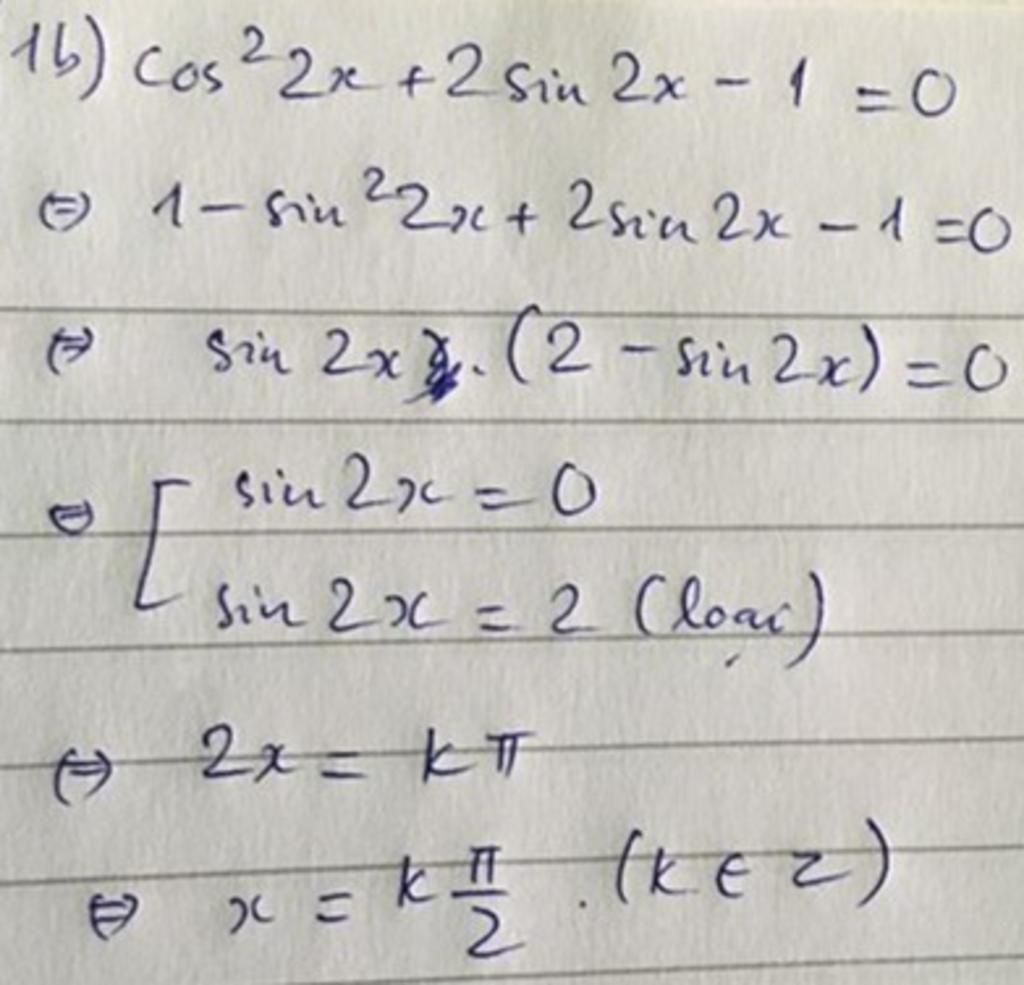 1b) cos²2x + 2sin 2x - 1 = 0
⇔ 1 - sin²2x + 2sin 2x - 1 = 0
⇔ sin 2x . (2 - sin 2x) = 0
⇔ [ sin 2x = 0
sin 2x = 2 (loại)
⇔ 2x = kπ
⇔ x = k π/2 . (k ∈ Z)